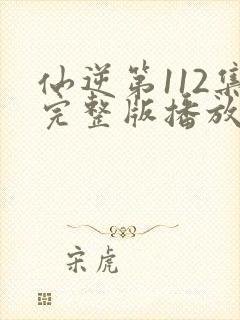 仙逆第112集
完整版播放
宋虎